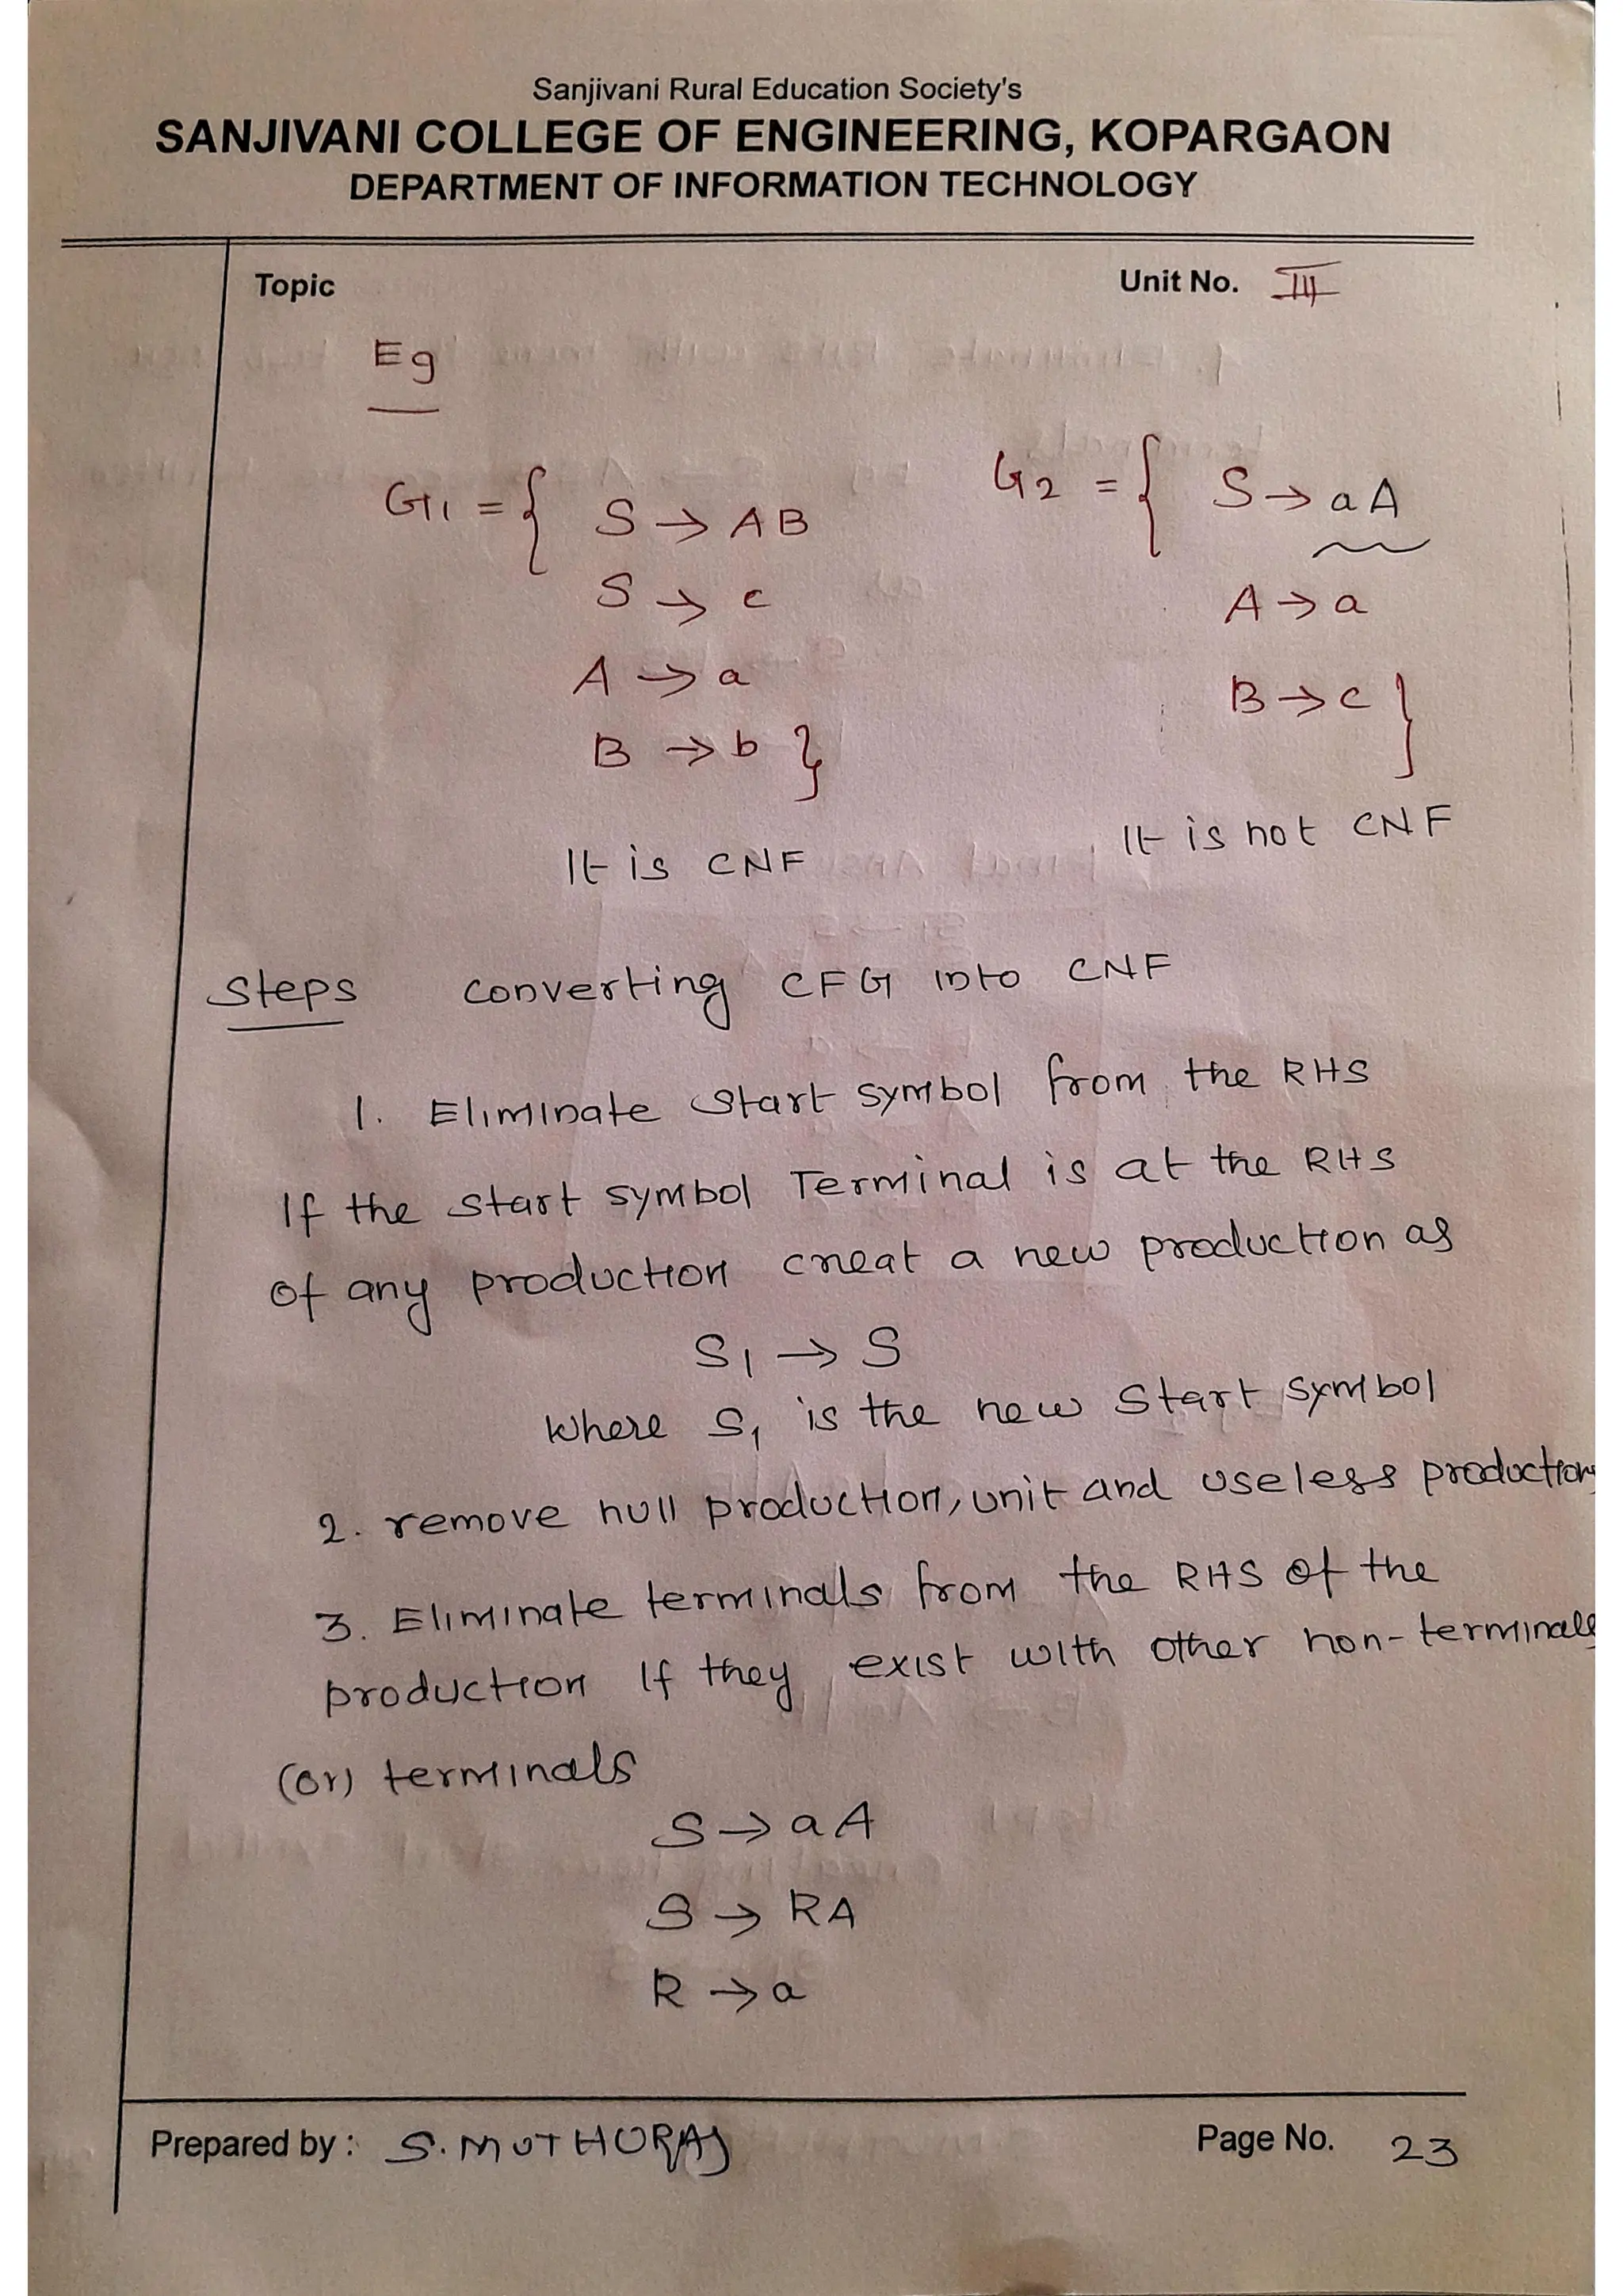 Sanjivani Rural Education Society's
SANJIVANI COLLEGE OF ENGINEERING, KOPARGAON
DEPARTMENT OF INFORMATION TECHNOLOGY
Topic Unit No. III
Eg
G1 = { S → AB
S → c
A → a
B → b }
It is CNF
G2 = { S → aA
A → a
B → c }
It is not CNF
Steps converting CFG into CNF
1. Eliminate start symbol from the RHS
If the start symbol Terminal is at the RHS
of any production creat a new production as
S1 → S
where S1 is the new start symbol
2. remove null production, unit and useless productions
3. Eliminate terminals from the RHS of the
production if they exist with other non-terminals
(or) terminals
S → aA
S → RA
R → a
Prepared by : S. MUTHURAJ Page No. 23